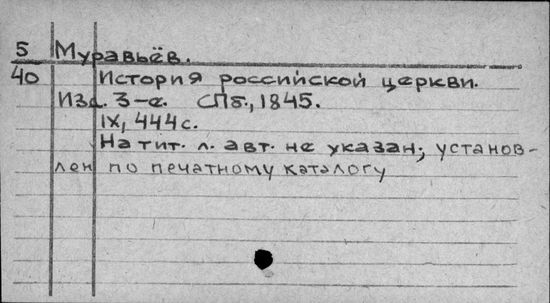 5 Муравьёв.
40 История российской церкви.
Изд. 3-е. СПб., 1845.
IX, 444 с.
На тит. л. авт. не указан; установ-
лен по печатному каталогу